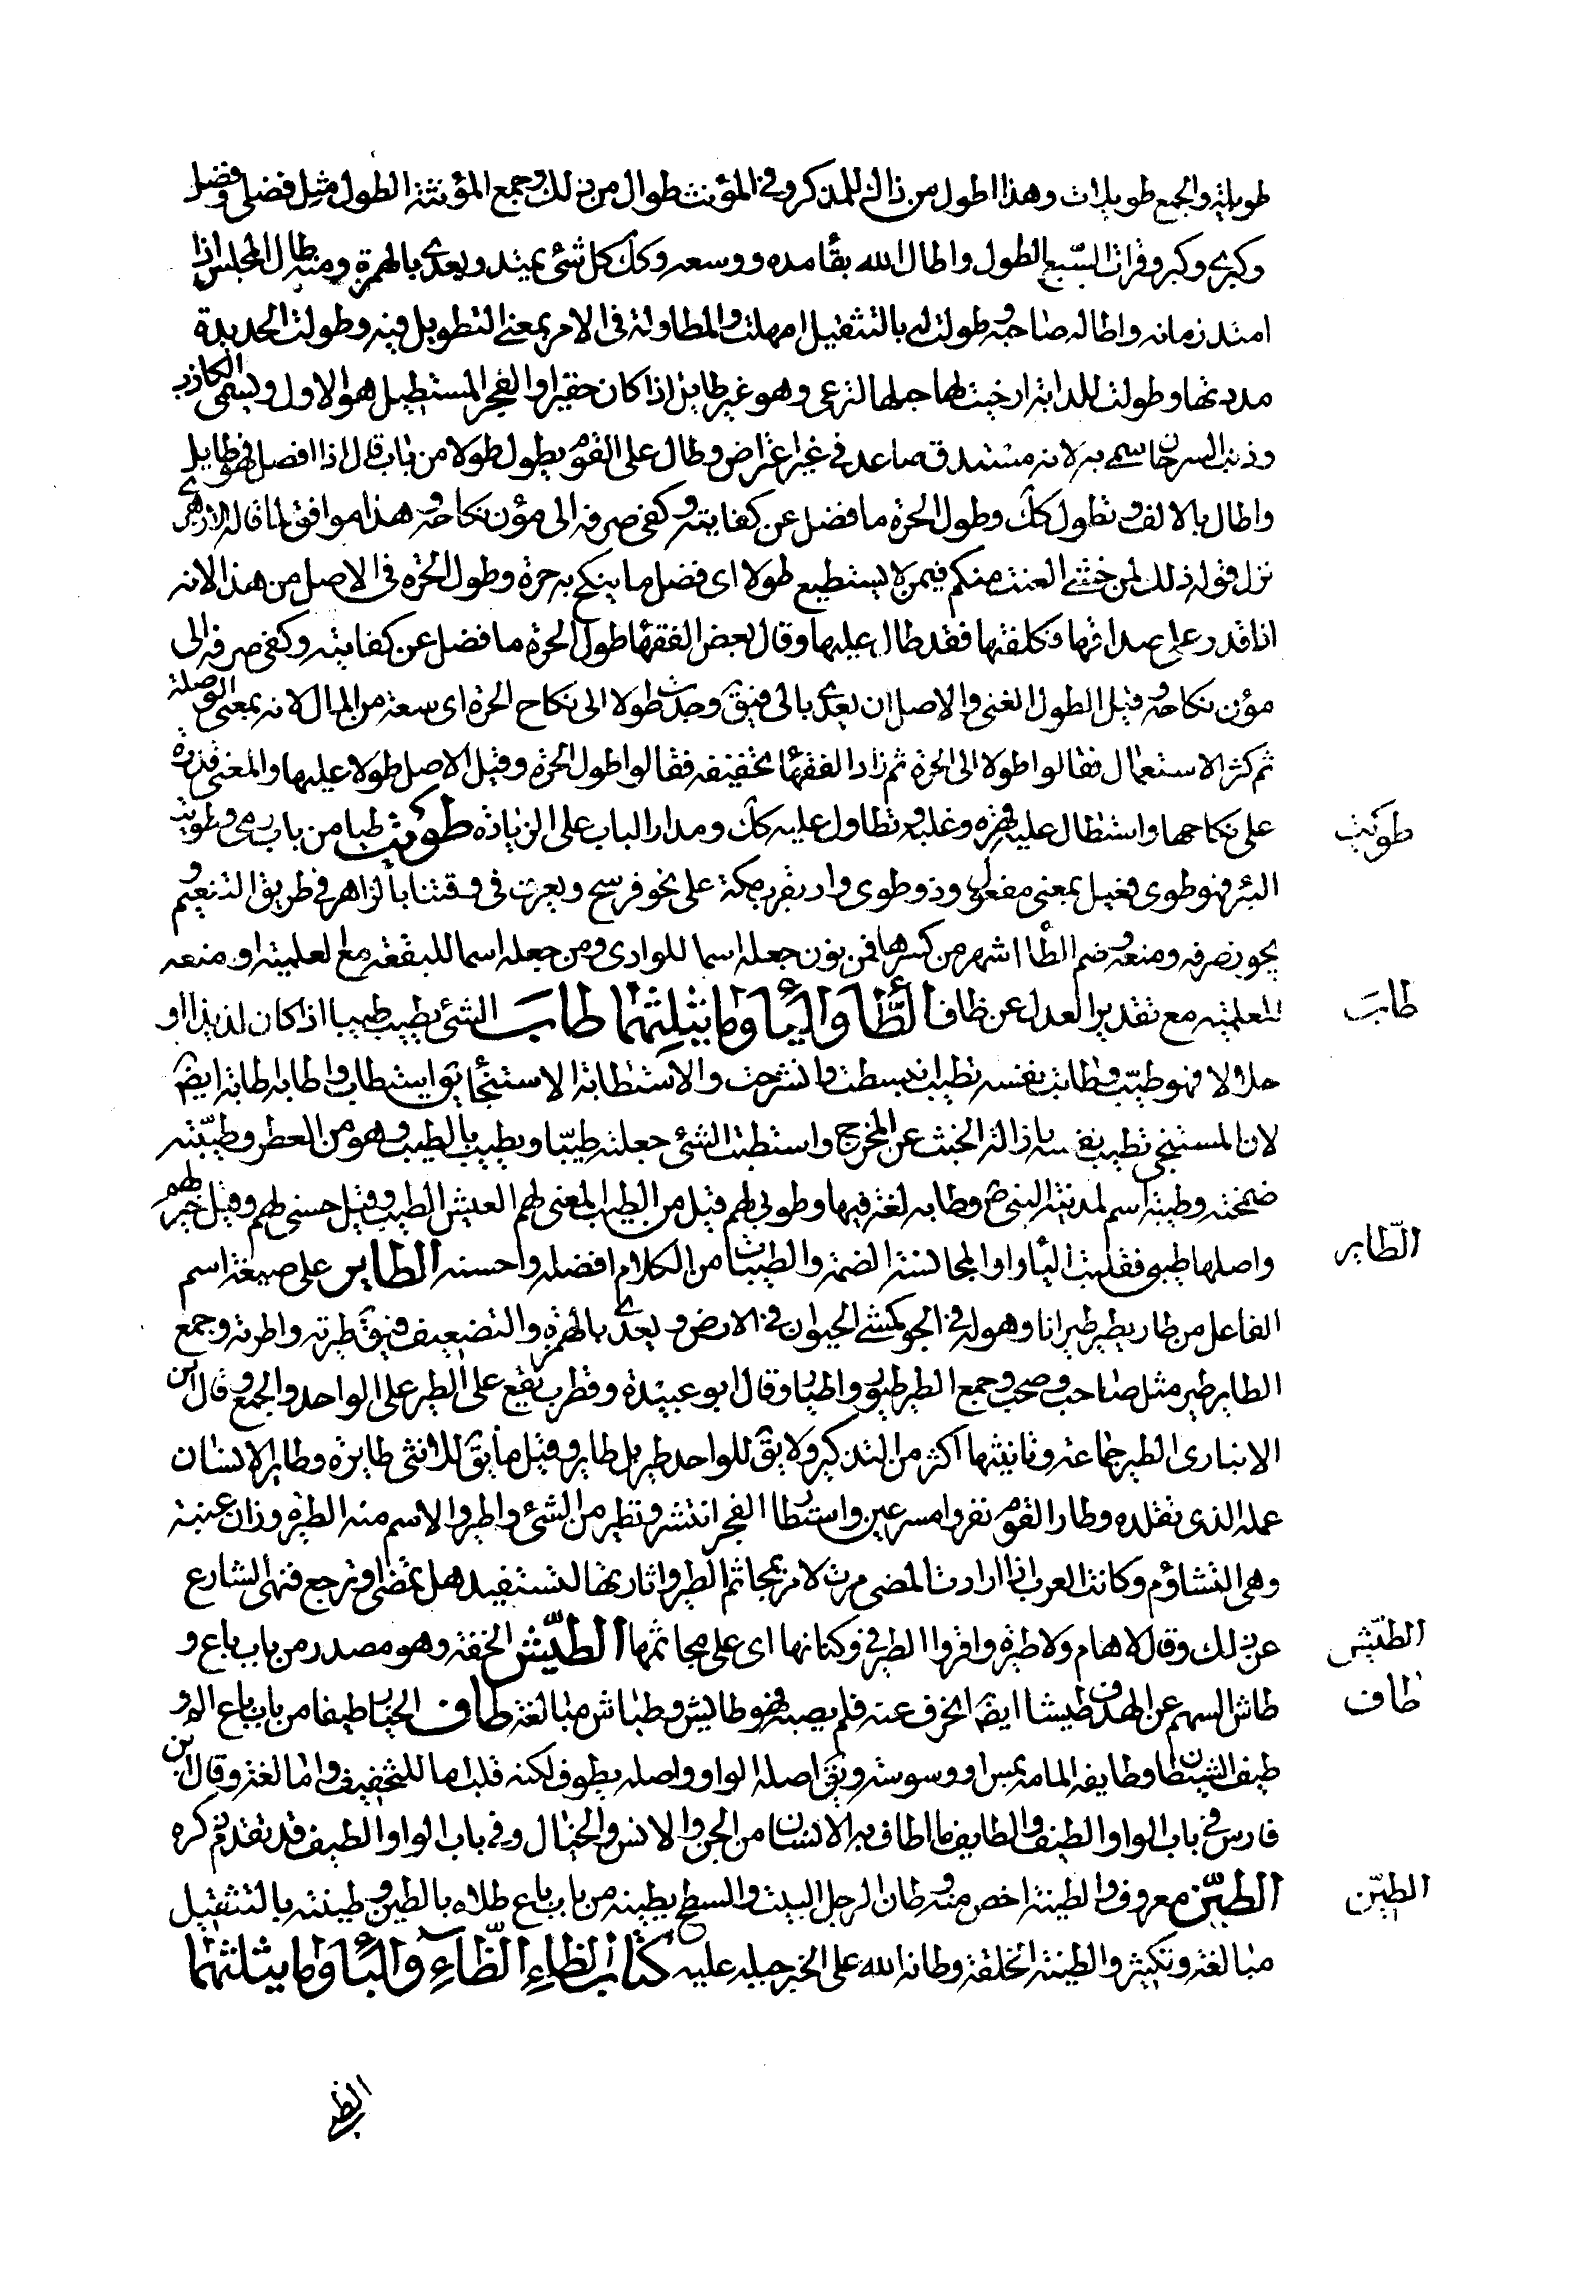 طويلة والجمع طويلات وهذا اطول من ذاك للمذكر وفي المؤنث طولى من ذلك وجمع المؤنثة الطول مثل فضلى وفضل
وكبرى وكبر وقرات السبع الطول واطال الله بقاه مده ووسعه وكك كل شئ يمتد ويعدى بالهمزة ومنه طال المجلس اذا
امتد زمانه واطاله صاحبه وطولت له بالتثقيل امهلت والمطاولة في الامر بمعنى التطويل فيه وطولت الحديدة
مددتها وطولت للدابة ارخيت لها حبلها لترعى وهو غير طايل اذا كان حقيرا والفجر المستطيل هو الاول ويسمى الكاذب
وذنب السرحان سمي به لانه مستدق صاعد في غير اعتراض وطال على القوم يطول طولا من باب قال اذا افضل فهو طايل
واطال بالالف وتطول كك وطول الحرة ما فضل عن كفايته وكفى صرفه الى مؤن نكاحه وهذا موافق لما قاله الازهري
نزل قوله ذلك لمن خشي العنت منكم فيمن لا يستطيع طولا اى فضل ما ينكح به حرة وطول الحرة في الاصل من هذا لانه
اذا قدر على صداقها وكلفتها فقد طال عليها وقال بعض الفقها طول الحرة ما فضل عن كفايته وكفى صرفه الى
مؤن نكاحه وقيل الطول الغنى والاصل ان يعدى بالى فيق وجدت طولا الى نكاح الحرة اى سعة من المال لانه بمعنى الوصلة
ثم كثر الاستعمال فقالوا طولا الى الحرة ثم زاد الفقها تخفيفه فقالوا طول الحرة وقيل الاصل طولا عليها والمعنى قدرة
على نكاحها واستطال عليه قهره وغلبه وتطاول عليه كك ومدار الباب على الزيادة طويت طيا من باب رمى وطويت
البئر فهو طوى فعيل بمعنى مفعول وذو طوى واد بقرب مكة على نحو فرسخ ويعرف في وقتنا بالزاهر في طريق التنعيم و
يجوز صرفه ومنعه وضم الطا اشهر من كسرها فمن نون جعله اسما للوادى ومن جعله اسما للبقعة مع العلمية او منعه
للعلمية مع تقدير العدل عن طاف الطا واليا وما يثلثهما طاب الشئ يطيب طيبا اذا كان لذيذا او
حلالا فهو طيب وطابت نفسه تطيب انبسطت وانشرحت والاستطابة الاستنجا يق استطاب واطاب اطابة ايض
لان المستنجي تطيب نفسه بازالة الخبث عن المخرج واستطبت الشئ جعلته طيبا ويطيب بالطيب وهو من العطر وطيبته
ضمخته وطيبة اسم لمدينة النبي ص وطابه لغة فيها وطوبى لهم قيل من الطيب المعنى لهم العيش الطيب وقيل حسنى لهم وقيل خير لهم
واصلها طيبى فقلبت اليا واوا لمجانسة الضمة والطيبات من الكلام افضله واحسنه الطاير على صيغة اسم
الفاعل من طار يطير طيرانا وهو له في الجو كمشي الحيوان في الارض ويعدى بالهمزة والتضعيف فيق طيرته واطرته وجمع
الطاير طير مثل صاحب وصحب وجمع الطير طيور واطيار وقال ابو عبيدة وقطرب يقع على الطير على الواحد والجمع وقال ابن
الانبارى الطير جماعة وتانيثها اكثر من التذكير ولا يق للواحد طير بل طاير وقيل ما يق للانثى طايرة وطاير الانسان
عمله الذى تقلده وطار القوم نفروا مسرعين واستطار الفجر انتشر وتطير من الشئ واطير والاسم منه الطيرة وزان عنبة
وهى التشاؤم وكانت العرب اذا ارادت المضي مرت لامر بمجاثم الطير واثارتها لتستفيد هل تمضى او ترجع فنهى الشارع
عن ذلك وقال لا هام ولا طيرة واقروا الطير في وكناتها اى على مجاثمها الطيش الخفة وهو مصدر من باب باع و
طاش السهم عن الهدف طيشا ايض انحرف عنه فلم يصبه فهو طايش وطياش مبالغة طاف الخيال طيفا من باب باع الم و
طيف الشيطان وطايفه المامه بمس او وسوسة ويق اصله الواو واصله يطوف لكنه قلب اما للتخفيف واما لغة وقال ابن
فارس في باب الواو الطيف والطايف ما اطاف به الانسان من الجن والانس والخيال وفي باب الواو الطيف قد تقدم ذكره
الطين معروف والطينة اخص منه وطان الرجل البيت والسطح يطينه من باب باع طلاه بالطين وطينته بالتثقيل
مبالغة وتكثير والطينة الخلقة وطانه الله على الخير جبله عليه كتاب الظاء الظاء والبا وما يثلثهما
طويت
طاب
الطاير
الطيش
طاف
الطين
الظبي